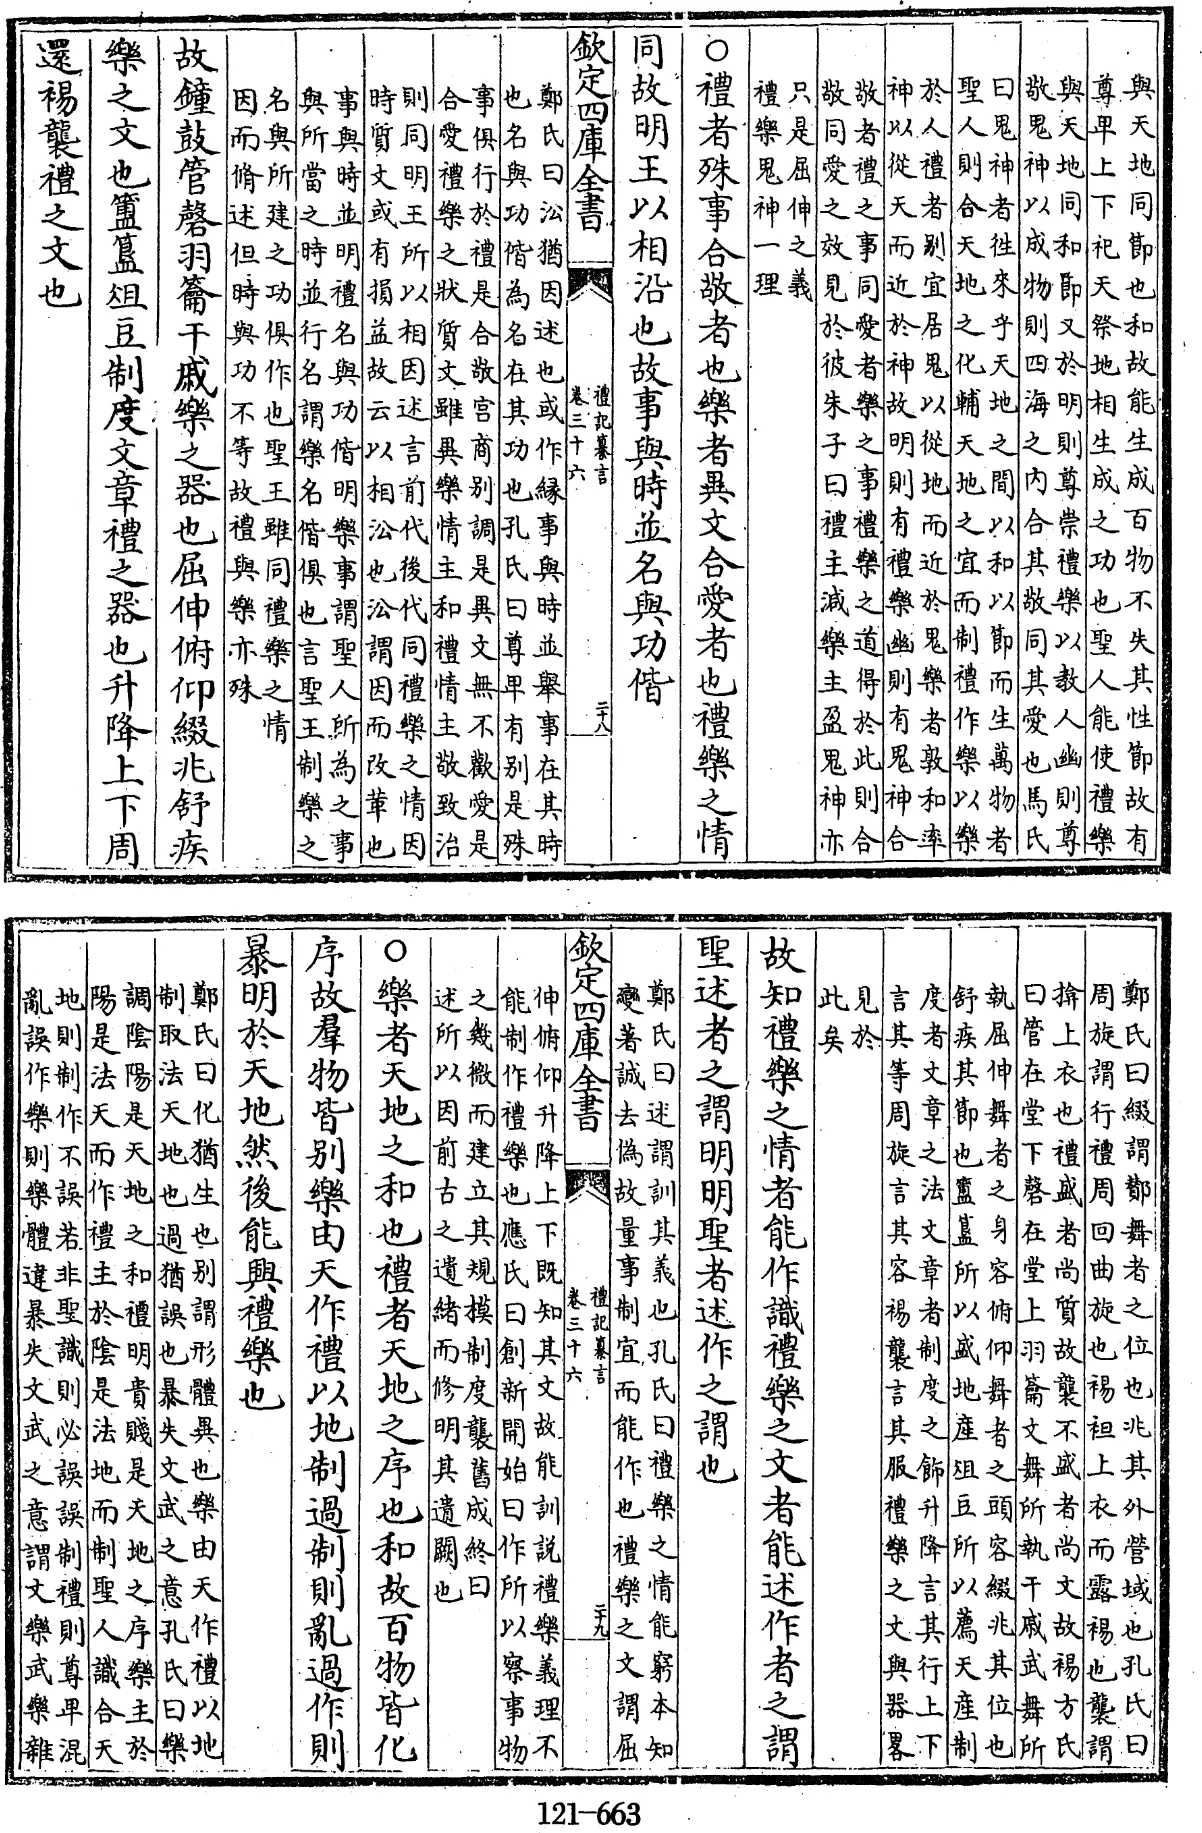 與天地同節也和故能生成百物不失其性節故有
尊卑上下祀天祭地相生成之功也聖人能使禮樂
與天地同和節又於明則尊崇禮樂以教人幽則尊
敬鬼神以成物則四海之内合其敬同其愛也馬氏
曰鬼神者徃來乎天地之間以和以節而生萬物者
聖人則合天地之化輔天地之宜而制禮作樂以樂
於人禮者别宜居鬼以從地而近於鬼樂者敦和率
神以從天而近於神故明則有禮樂幽則有鬼神合
敬者禮之事同愛者樂之事禮樂之道得於此則合
敬同愛之效見於彼朱子曰禮主減樂主盈鬼神亦
只是屈伸之義
禮樂鬼神一理
○禮者殊事合敬者也樂者異文合愛者也禮樂之情
同故明王以相沿也故事與時並名與功偕
欽定四庫全書
禮記纂言
卷三十六
二十八
鄭氏曰沿猶因述也或作縁事與時並舉事在其時
也名與功偕為名在其功也孔氏曰尊卑有别是殊
事俱行於禮是合敬宫商别調是異文無不歡愛是
合愛禮樂之狀質文雖異樂情主和禮情主敬致治
則同明王所以相因述言前代後代同禮樂之情因
時質文或有損益故云以相沿也沿謂因而改革也
事與時並明禮名與功偕明樂事謂聖人所為之事
與所當之時並行名謂樂名偕俱也言聖王制樂之
名與所建之功俱作也聖王雖同禮樂之情
因而脩述但時與功不等故禮與樂亦殊
故鐘鼓管磬羽籥干戚樂之器也屈伸俯仰綴兆舒疾
樂之文也簠簋俎豆制度文章禮之器也升降上下周
還裼襲禮之文也
鄭氏曰綴謂酇舞者之位也兆其外營域也孔氏曰
周旋謂行禮周回曲旋也裼袒上衣而露裼也襲謂
揜上衣也禮盛者尚質故襲不盛者尚文故裼方氏
曰管在堂下磬在堂上羽籥文舞所執干戚武舞所
執屈伸舞者之身容俯仰舞者之頭容綴兆其位也
舒疾其節也簠簋所以盛地產俎豆所以薦天產制
度者文章之法文章者制度之飾升降言其行上下
言其等周旋言其容裼襲言其服禮樂之文與器畧
見於
此矣
故知禮樂之情者能作識禮樂之文者能述作者之謂
聖述者之謂明明聖者述作之謂也
鄭氏曰述謂訓其義也孔氏曰禮樂之情能窮本知
變著誠去偽故量事制宜而能作也禮樂之文謂屈
欽定四庫全書
禮記纂言
卷三十六
二十九
伸俯仰升降上下既知其文故能訓説禮樂義理不
能制作禮樂也應氏曰創新開始曰作所以察事物
之幾微而建立其規模制度襲舊成終曰
述所以因前古之遺緒而修明其遺闕也
○樂者天地之和也禮者天地之序也和故百物皆化
序故羣物皆别樂由天作禮以地制過制則亂過作則
暴明於天地然後能興禮樂也
鄭氏曰化猶生也别謂形體異也樂由天作禮以地
制取法天地也過猶誤也暴失文武之意孔氏曰樂
調陰陽是天地之和禮明貴賤是天地之序樂主於
陽是法天而作禮主於陰是法地而制聖人識合天
地則制作不誤若非聖識則必誤誤制禮則尊卑混
亂誤作樂則樂體違暴失文武之意謂文樂武樂雜
121-663